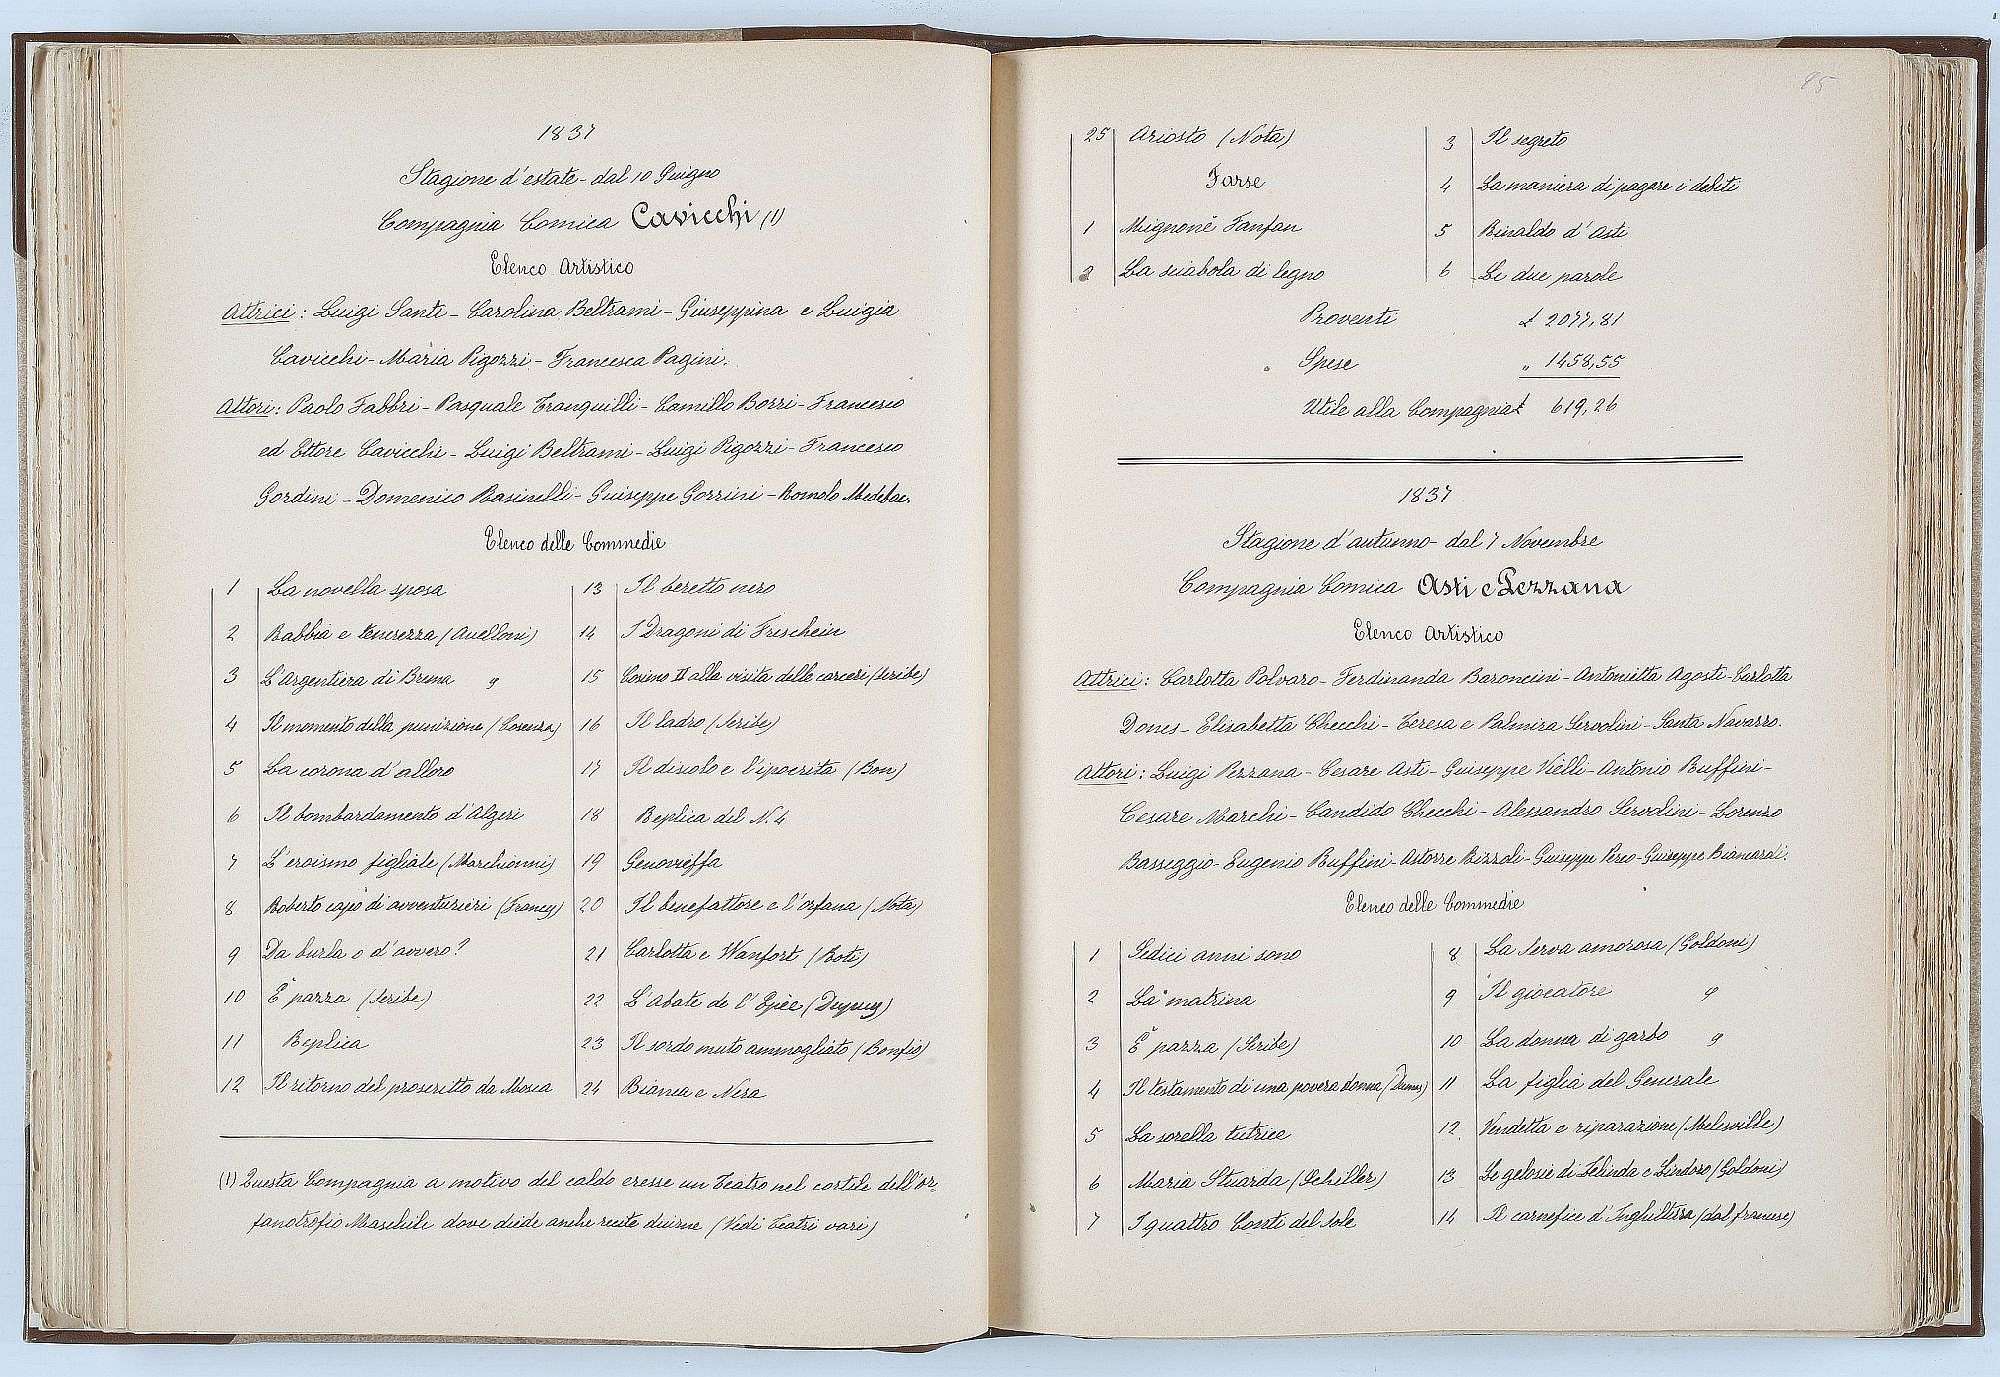 1837
Stagione d'estate - dal 10 Giugno
Compagnia Comica Cavicchi (1)
Elenco Artistico
Attrici: Luigi Santi - Carolina Beltrami - Giuseppina e Luigia
Cavicchi - Maria Pigozzi - Francesca Pagini.
Attori: Paolo Fabbri - Pasquale Tranquilli - Camillo Borri - Francesco
ed Ettore Cavicchi - Luigi Beltrami - Luigi Pigozzi - Francesco
Gordini - Domenico Basinelli - Giuseppe Gorrini - Romolo
Elenco delle Commedie
1 La novella sposa
2 Rabbia e tenerezza (Avelloni)
3 L'Argentiera di Brema "
4 Il momento della punizione (Cosenza)
5 La corona d'alloro
6 Il bombardamento d'Algeri
7 L'eroismo figliale (Marchionni)
8 Roberto capo di avventurieri (Francy)
9 Da burla o d'avvero?
10 È pazza (Scribe)
11 Replica
12 Il ritorno del proscritto da Mosca
13 Il beretto nero
14 I Dragoni di Freschein
15 Cosimo II alla visita delle carceri (Scribe)
16 Il ladro (Scribe)
17 Il discolo e l'ipocrita (Bon)
18 Replica del N. 4
19 Genovieffa
20 Il benefattore e l'orfana (Nota)
21 Carlotta e Wanfort (Roti)
22 L'Abate de l'Epée (Dupuy)
23 Il sordo muto ammogliato (Bonfio)
24 Bianca e Nera
(1) Questa Compagnia a motivo del caldo eresse un Teatro nel cortile dell'or-
fanotrofio Maschile dove diede anche recite diurne (Vedi Teatri vari)
85
25 Ariosto (Nota)
Farse
1 Mignonè Fanfan
2 La sciabola di legno
3 Il segreto
4 La maniera di pagare i debiti
5 Rinaldo d'Asti
6 Le due parole
Proventi £ 2077,81
Spese " 1458,55
Utile alla Compagnia £ 619,26
1837
Stagione d'autunno - dal 7 Novembre
Compagnia Comica Asti e Pezzana
Elenco Artistico
Attrici: Carlotta Polvaro - Ferdinanda Baroncini - Antonietta Agosti - Carlotta
Dones - Elisabetta Checchi - Teresa e Palmira Servolini - Santa Navarro.
Attori: Luigi Pezzana - Cesare Asti - Giuseppe Vielli - Antonio Ruffini -
Cesare Marchi - Candido Checchi - Alessandro Servolini - Lorenzo
Basseggio - Eugenio Ruffini - Astorre Rizzoli - Giuseppe - Giuseppe Biancardi.
Elenco delle Commedie
1 Sedici anni sono
2 La matrina
3 È pazza (Scribe)
4 Il testamento di una povera donna (Dumas)
5 La sorella tutrice
6 Maria Stuarda (Schiller)
7 I quattro Conti del Sole
8 La Serva amorosa (Goldoni)
9 Il giocatore "
10 La donna di garbo "
11 La figlia del Generale
12 Vendetta e riparazione (Melesville)
13 Le gelosie di Zelinda e Lindoro (Goldoni)
14 Il carnefice d'Inghilterra (dal francese)